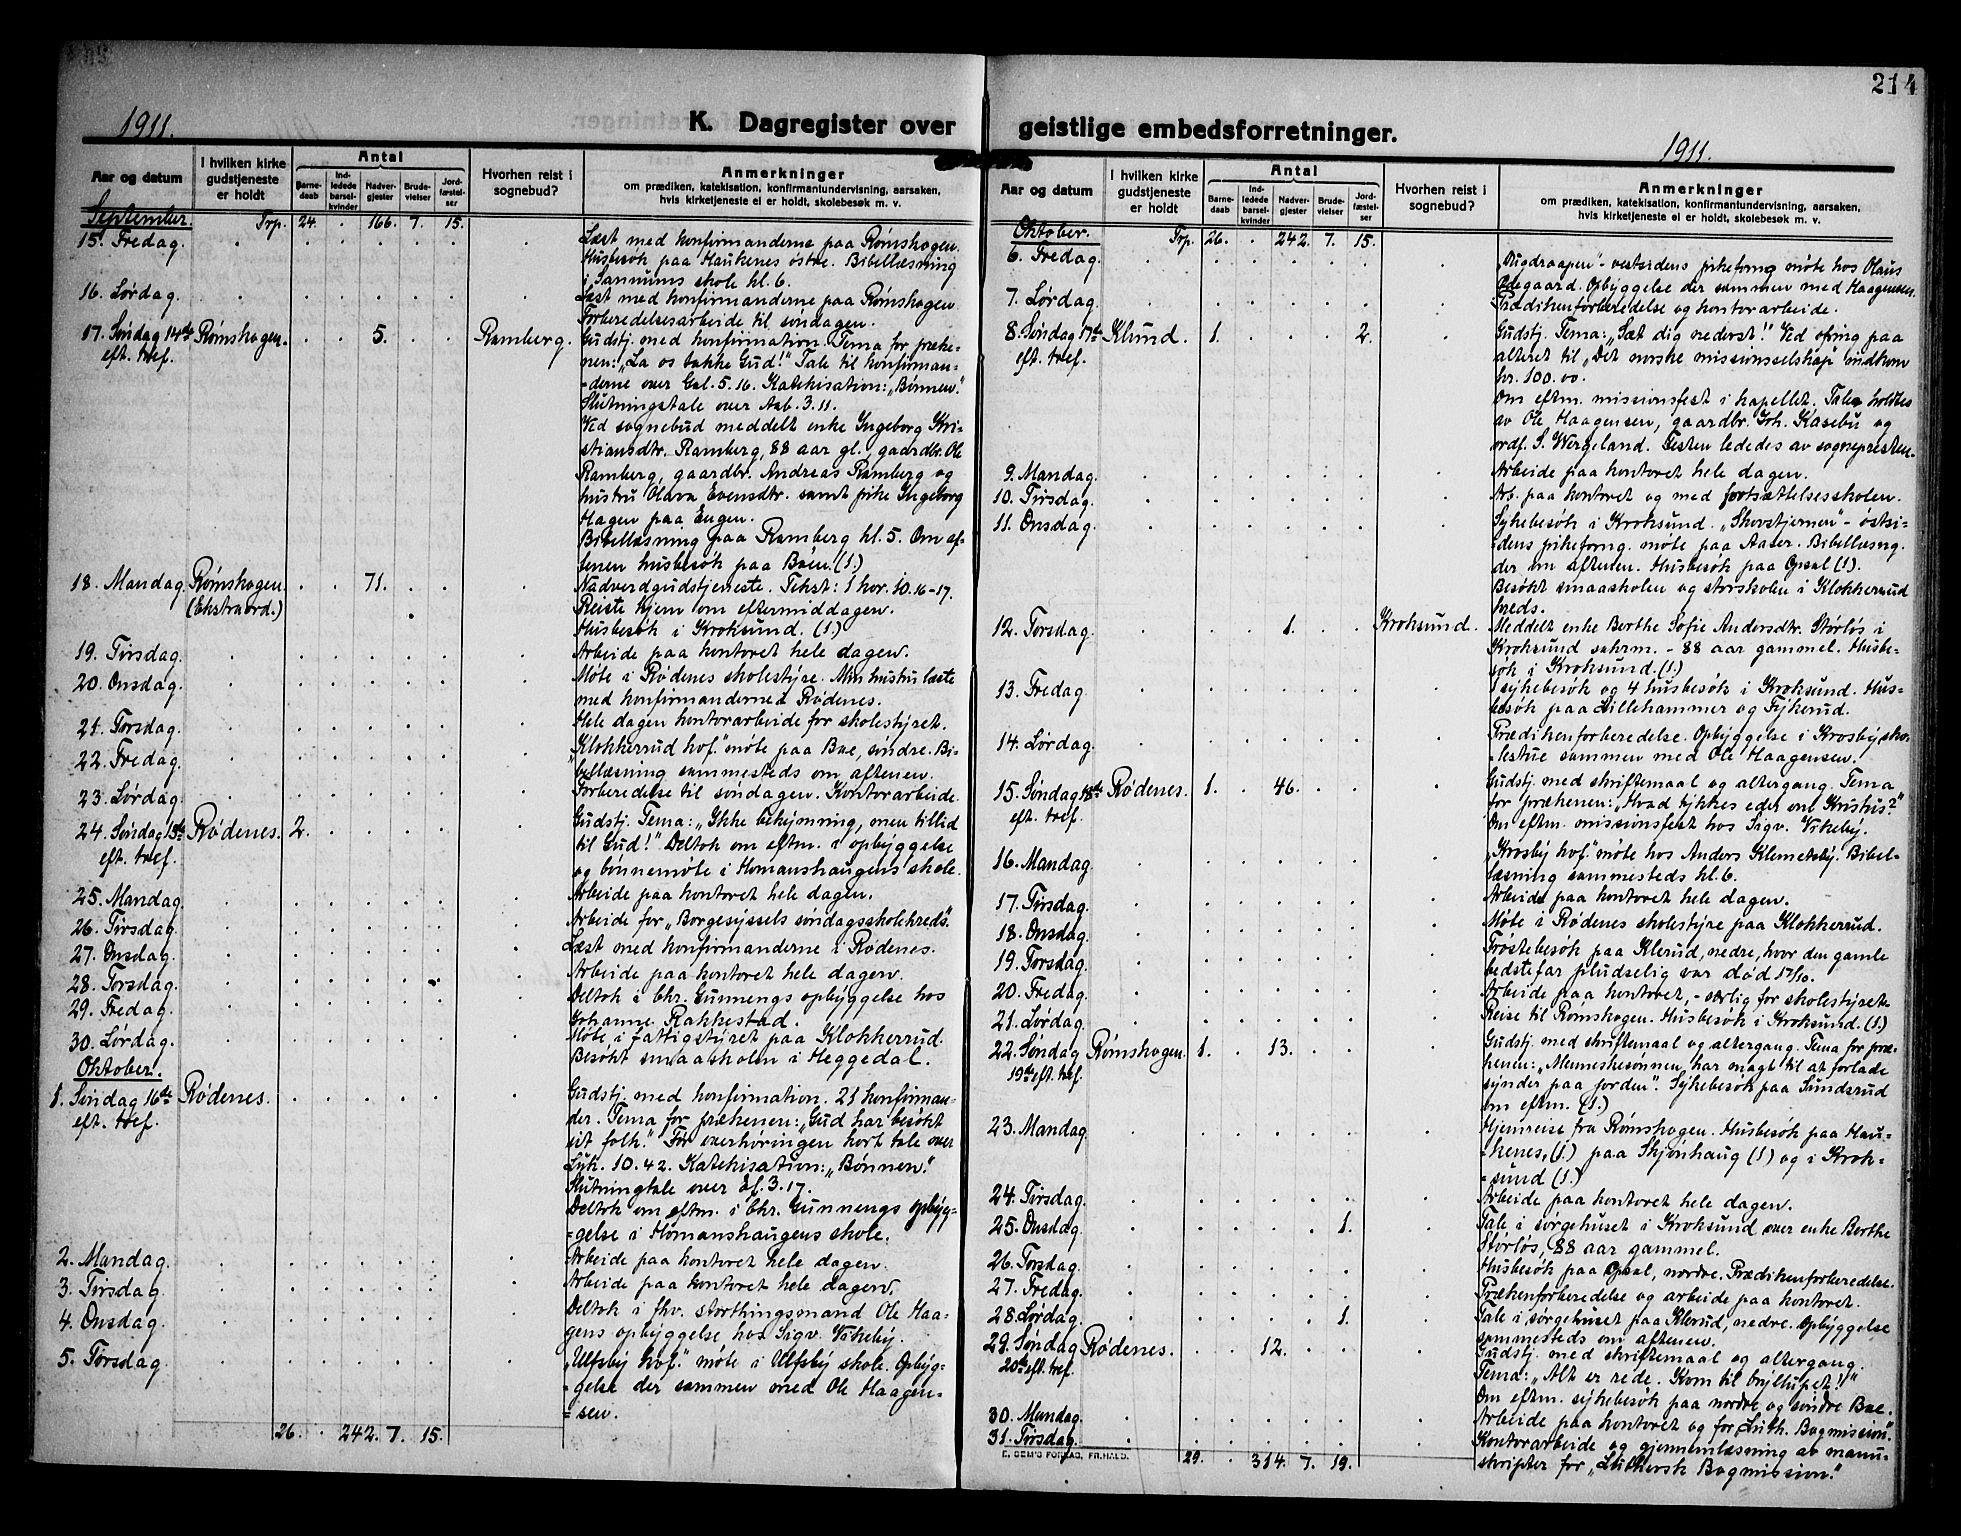 214
1911.
K. Dagregister over
Aar og datum
I hvilken kirke gudstjeneste er holdt
Antal
Barnedaab
Indledede barselkvinder
Nadvergjester
Brudevielser
Jordfæstelser
Hvorhen reist i sognebud?
Anmerkninger
om prædiken, katekisation, konfirmantundervisning, aarsaken,
hvis kirketjeneste ei er holdt, skolebesøk m. v.
September. Trp. 24. 166. 7. 15.
15. Fredag. Læst med konfirmanderne paa Rømshagen.
Husbesøk paa Haukenes østre. Bibellæsning
i Sannums skole kl. 6.
16. Lørdag. Læst med konfirmanderne paa Rømshagen.
Forberedelsesarbeide til søndagen.
17. Søndag 14de eft. tref. Rømshagen. 5. Ramberg. Gudstj. med konfirmation. Tema for præke-
nen: „La os takke Gud!" Tale til konfirman-
-derne over Gal. 5.16. Katekisation: „Bønnen".
Slutningstale over Aab. 3.11.
Ved sognebud meddelt enke Ingeborg Kri-
stiansdtr. Ramberg, 88 aar gl., gaardbr. Ole
Ramberg, gaardbr. Andreas Ramberg og
hustru Olava Evensdtr. samt pike Ingeborg
Hagen paa Engen.
Bibellæsning paa Ramberg kl. 5. Om af-
tenen husbesøk paa Bøen. (1.)
18. Mandag. Rømshagen. (Ekstraord.) 71. Nadverdgudstjeneste. Tekst: 1 kor. 10.16-17.
Reiste hjem om eftermiddagen.
Husbesøk i Kroksund. (1.)
19. Tirsdag. Arbeide paa kontoret hele dagen.
20. Onsdag. Møte i Rødenes skolestyre. Min hustru læste
med konfirmanderne i Rødenes.
21. Torsdag. Hele dagen kontorarbeide for skolestyret.
22. Fredag. „Klokkerrud kof." møte paa Bøe, søndre. Bi-
bellæsning sammesteds om aftenen.
23. Lørdag. Forberedelse til søndagen. Kontorarbeide.
24. Søndag 15de eft. tref. Rødenes. 2. Gudstj. Tema: „Ikke bekymring, men tillid
til Gud!" Deltok om eftm. i opbyggelse
og bønnemøte i Homanshaugens skole.
25. Mandag. Arbeide paa kontoret hele dagen.
26. Tirsdag. Arbeide for „Borgesyssels søndagsskolekreds".
27. Onsdag. Læst med konfirmanderne i Rødenes.
28. Torsdag. Arbeide paa kontoret hele dagen.
29. Fredag. Deltok i Chr. Gunnengs opbyggelse hos
Johanne Rakkestad.
30. Lørdag. Møte i fattigstyret paa Klokkerrud.
Besøkt smaaskolen i Heggedal.
Oktober.
1. Søndag 16de eft. tref. Rødenes. Gudstj. med konfirmation. 21 konfirman-
der. Tema for prækenen: „Gud har besøkt
sit folk." Før overhøringen kort tale over
Luk. 10.42. Katekisation: „Bønnen".
Slutningtale over Ef. 3.17.
Deltok om eftm. i Chr. Gunnengs opbyg-
=gelse i Homanshaugens skole.
2. Mandag. Arbeide paa kontoret hele dagen.
3. Tirsdag. Arbeide paa kontoret hele dagen.
4. Onsdag. Deltok i fhv. storthingsmand Ole Haa-
gens opbyggelse hos Sigv. Vikeby.
5. Torsdag. „Ulfsby kof." møte i Ulfsby skole. Opbyg-
=gelse der sammen med Ole Haagen-
=sen.
26. 242. 7. 15.
geistlige embedsforretninger.
1911.
Aar og datum
I hvilken kirke gudstjeneste er holdt
Antal
Barnedaab
Indledede barselkvinder
Nadvergjester
Brudevielser
Jordfæstelser
Hvorhen reist i sognebud?
Anmerkninger
om prædiken, katekisation, konfirmantundervisning, aarsaken,
hvis kirketjeneste ei er holdt, skolebesøk m. v.
Oktober. Trp. 26. 242. 7. 15.
6. Fredag. „Dugdraapen" - vestsidens pikeforng. møte hos Olaus
Ødegaard. Opbyggelse der sammen med Haagensen.
7. Lørdag. Prædikenforberedelse og kontorarbeide.
8. Søndag 17de eft. tref. Klund. 1. 2. Gudstj. Tema: „Sæt dig nederst!" Ved ofring paa
alteret til „Det norske missionsselskap" indkom
kr. 100.00.
Om eftm. missionsfest i kapellet. Taler holdtes
av Ole Haagensen, gaardbr. Joh. Kasebu og
ordf. S. Wergeland. Festen lededes av sognepresten.
9. Mandag. Arbeide paa kontoret hele dagen.
10. Tirsdag. Arb. paa kontoret og med fortsættelsesskolen.
11. Onsdag. Sykebesøk i Kroksund. „Skovstjernen" - østsi-
dens pikeforng. møte paa Aaser. Bibellæsng.
der om aftenen. Husbesøk paa Opsal (1).
Besøkt smaaskolen og storskolen i Klokkerrud
kreds.
12. Torsdag. 1. Kroksund. Meddelt enke Berthe Sofie Andersdtr. Størløs i
Kroksund sakrm. - 88 aar gammel. Husbe-
søk i Kroksund. (1.)
13. Fredag 1 sykebesøk og 4 husbesøk i Kroksund. Hus-
besøk paa Lillehammer og Fykerud.
14. Lørdag. Prædikenforberedelse. Opbyggelse i Krosby sko-
-lestue sammen med Ole Haagensen.
15. Søndag 18de eft. tref. Rødenes. 1. 46. Gudstj. med skriftemaal og altergang. Tema
for prækenen: „Hvad tykkes eder om Kristus?"
Om eftm. missionsfest hos Sigv. Vikeby.
16. Mandag „Krosby kof." møte hos Anders Klemetsby. Bibel-
læsning sammesteds kl. 6.
17. Tirsdag. Arbeide paa kontoret hele dagen.
18. Onsdag. Møte i Rødenes skolestyre paa Klokkerrud.
19. Torsdag. Trøstebesøk paa Klerud, nedre, hvor den gamle
bedstefar pludselig var død 17/10.
20. Fredag. Arbeide paa kontoret, - særlig for skolestyret.
21. Lørdag. Reise til Rømshagen. Husbesøk i Kroksund. (1.)
22. Søndag 19de eft. tref. Rømshagen. 1. 13. Gudstj. med skriftemaal og altergang. Tema for præ-
kenen: „Menneskesønnen har magt til at forlade
synder paa jorden". Sykebesøk paa Sundsrud
om eftm. (1.)
23. Mandag. Hjemreise fra Rømshagen. Husbesøk paa Hau-
-kenes, (1.) paa Skjønhaug (1) og i Krok-
=sund (1.)
24. Tirsdag. Arbeide paa kontoret hele dagen.
25. Onsdag. 1. Tale i sørgehuset i Kroksund over enke Berthe
Størløs, 88 aar gammel.
26. Torsdag. Husbesøk paa Opsal, nordre. Prædikenforberedelse.
27. Fredag. Prækenforberedelse og arbeide paa kontoret.
28. Lørdag. 1. Tale i sørgehuset paa Klerud, nedre. Opbyggelse
sammesteds om aftenen.
29. Søndag 20de eft. tref. Rødenes. 12. Gudstj. med skriftemaal og altergang.
Tema: „Alt er rede. Kom til bryllupet!"
Om eftm. sykebesøk paa nordre og søndre Bøe.
30. Mandag. Arbeide paa kontoret og for „Luth. Bogmission".
31. Tirsdag. Kontorarbeide og gjennemlæsning av manu-
skripter for „Luthersk Bogmission."
29. 314. 7. 19.
E. SEM'S FORLAG, FR.HALD.